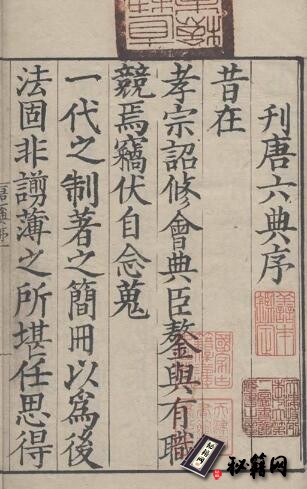 刊唐六典序
昔在
孝宗詔修會典臣鏊與有職
競焉竊伏自念蒐
一代之制著之簡冊以為後
法固非謭薄之所堪任思得
秘籍网